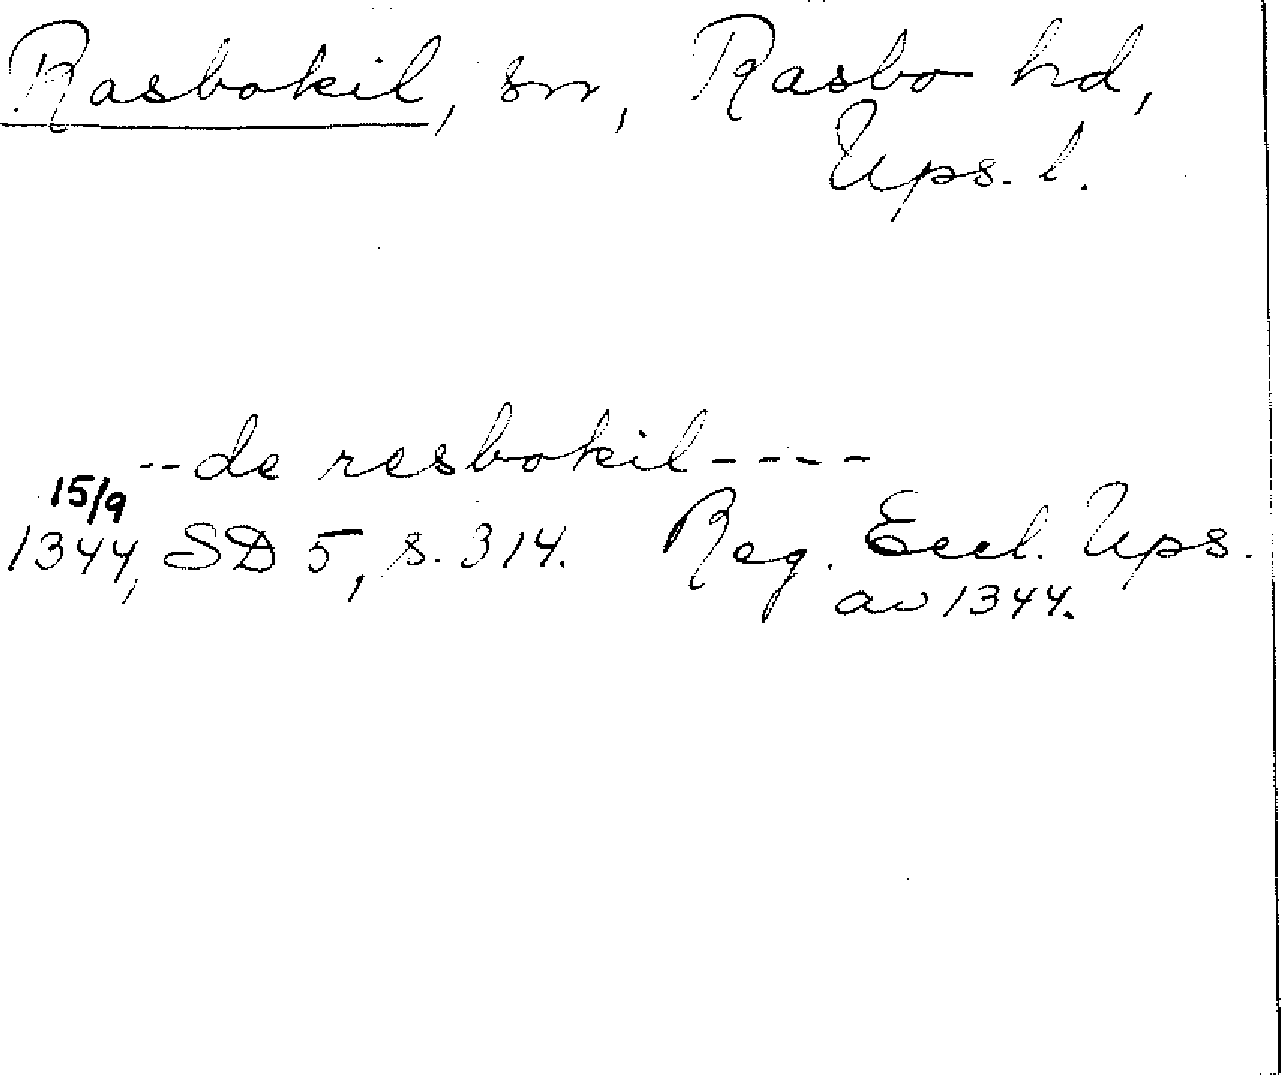 Rasbokil, sn, Rasbo hd,
Ups. l.
--de resbokil----
15/9
1344, SD 5, s. 314. Reg. Eccl. Ups.
av 1344.